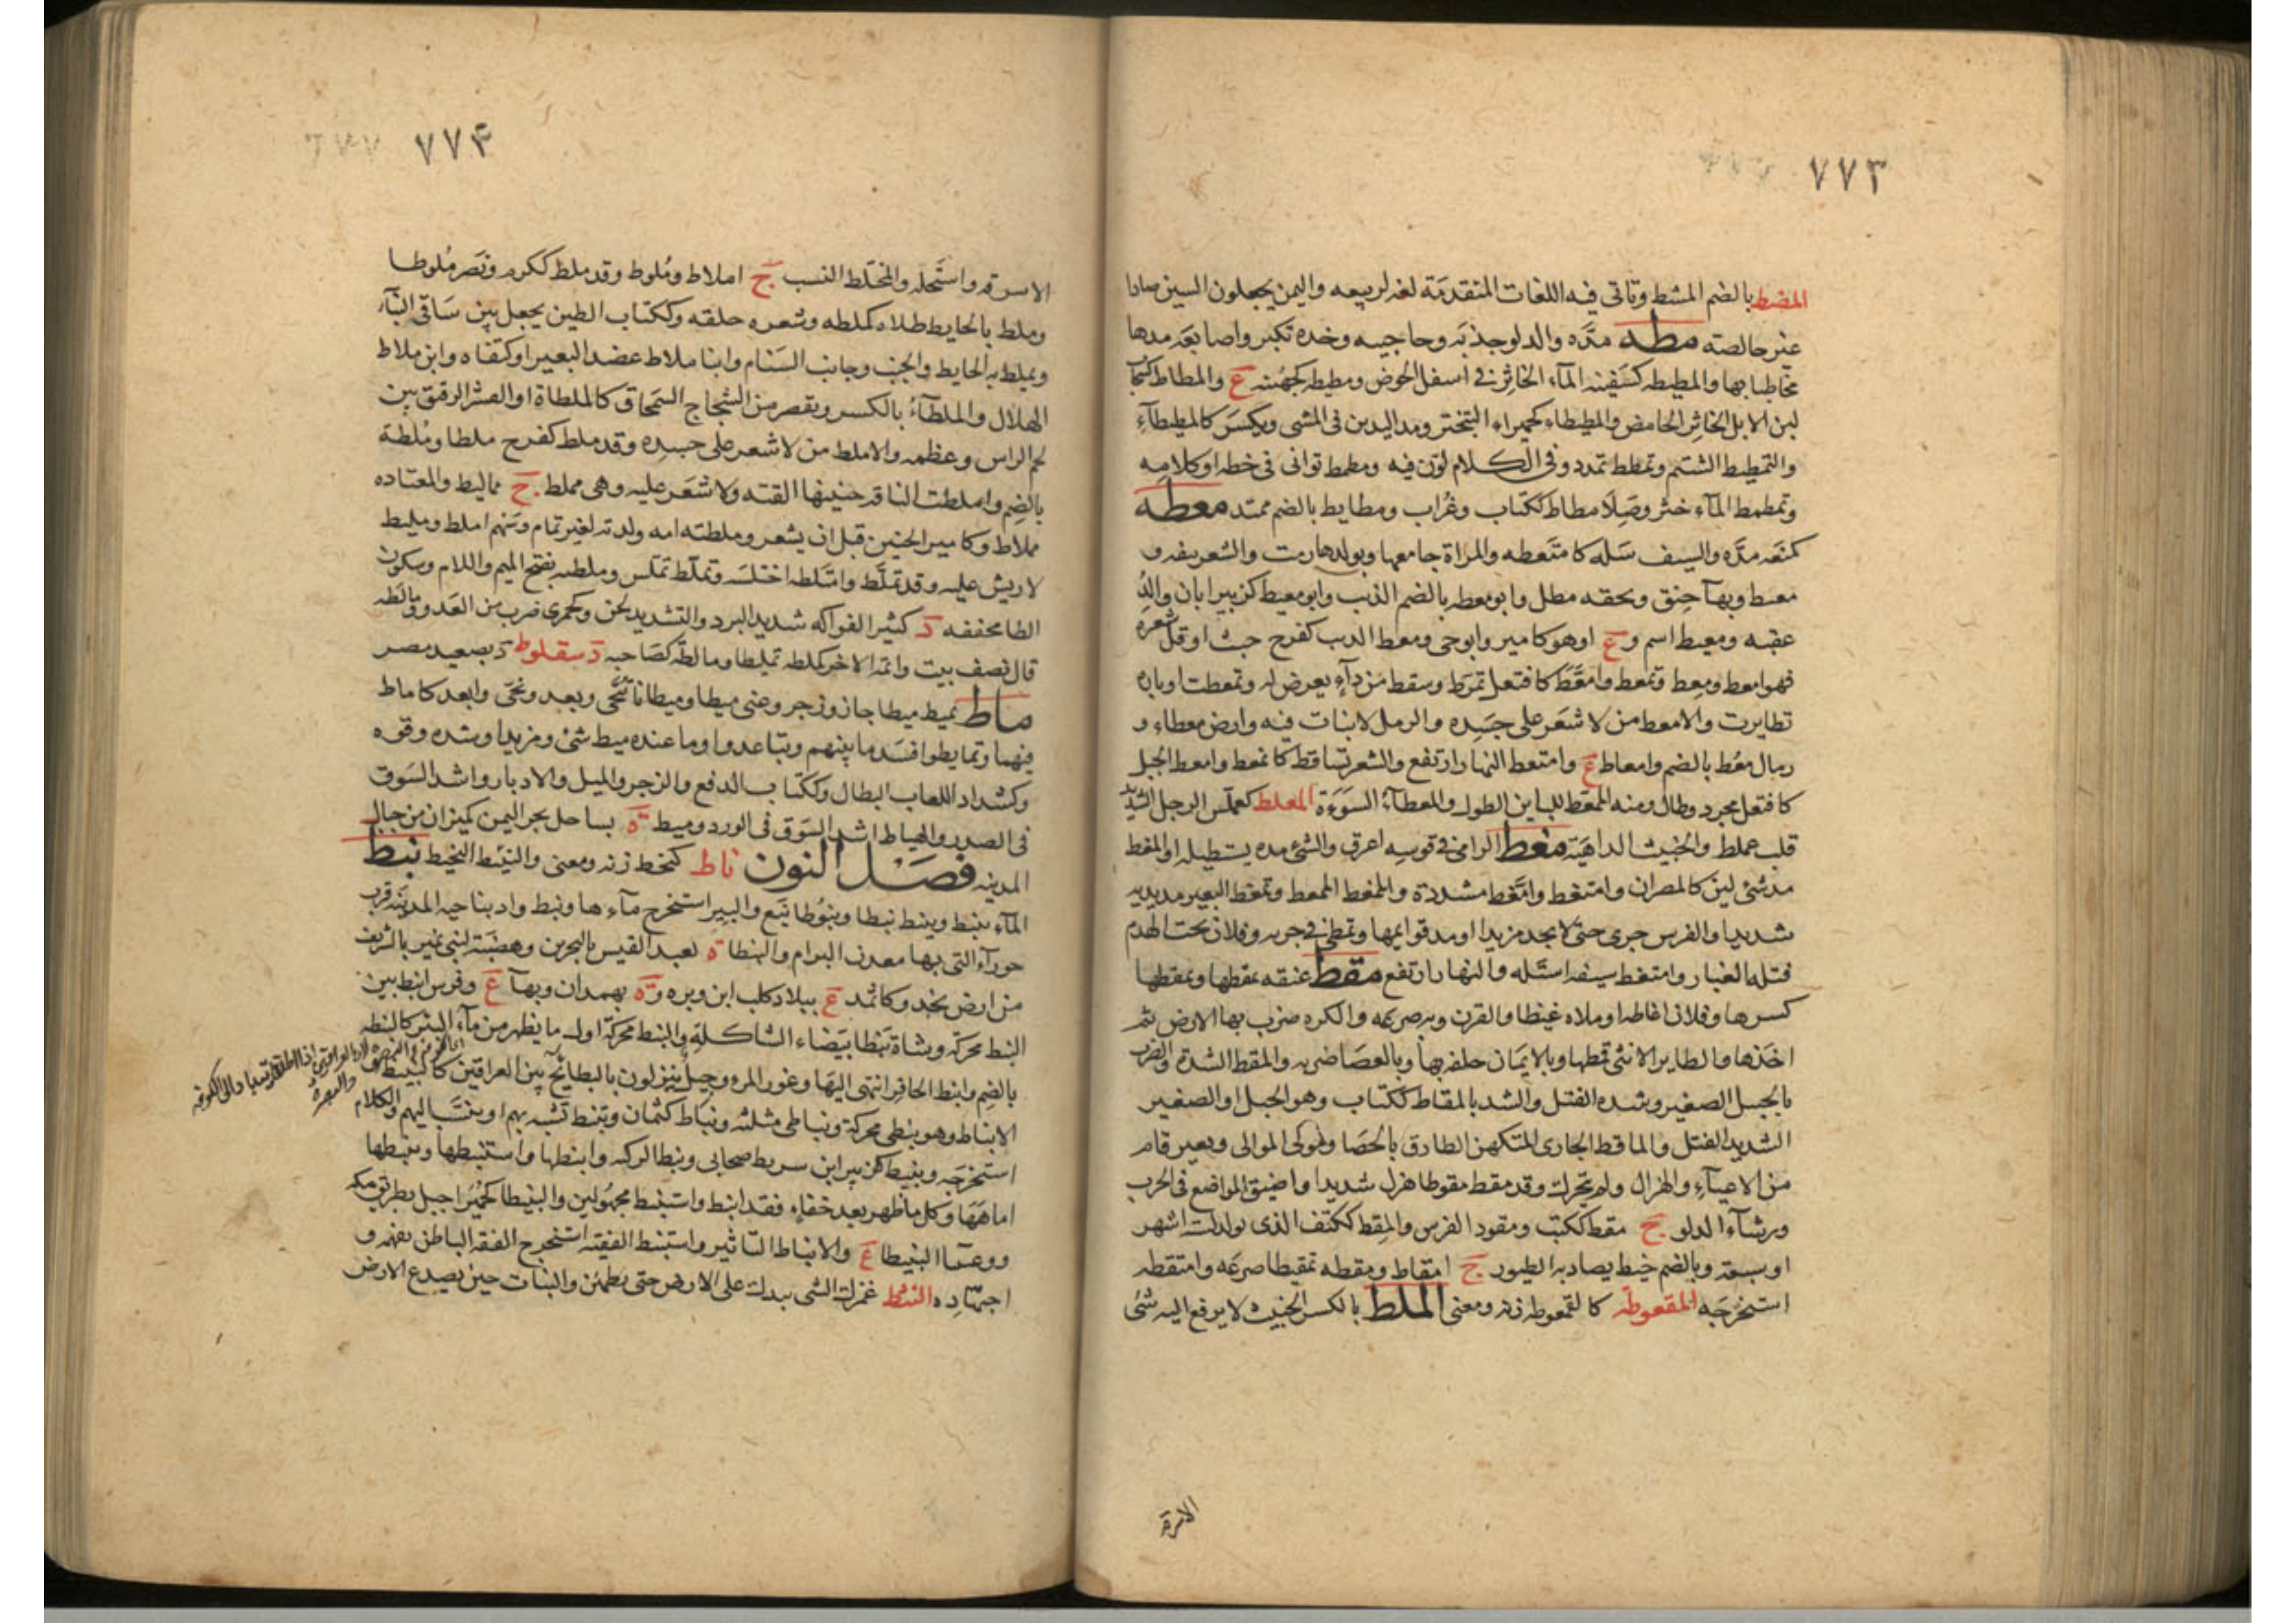 ٧٧٣
المضط بالضم المشط وتاتى فيه اللغات المتقدمة لغة لربيعه واليمن يجعلون السين صادا
غير خالصته مطه مدّه والدلو جذبه وحاجبيه وخده تكبر واصابعه مدها
مخاطبا بها والمطيطه كسفينه المآء الخاثر فى اسفل الحوض ومطيطه كجهينه ع والمطاط كسحاب
لبن الابل الخاثر الحامض والمطيطاء كحميراء التبختر ومد اليدين فى المشى ويكسر كالمطيطآء
والتمطيط الشتم وتمطط تمدد وفى الكلام لون فيه ومطمط توانى فى خطه او كلامه
وتمطمط المآء خثر وصلا مطاط ككتاب وغراب ومطايط بالضم ممتد معطه
كمنعه مدّه والسيف سله كامتعطه والمراة جامعها وبولدها رمت والشعر نتفه و
معط وبها حبق وبحقه مطل وابو معطه بالضم الذئب وابو معيط كزبير ابان والد
عقبه ومعيط اسم و ع او هو كامير وابو حى ومعط الذئب كفرح خبث او قل شعره
فهو امعط ومعط وتمعط وامعط كافتعل تمرط وسقط من دآء يعرض له وتمعطت اوباره
تطايرت والامعط من لا شعر على جسده والرمل لا نبات فيه وارض معطاء و
رمال معط بالضم وامعاط ع وامتعط النهار ارتفع والشعر تساقط كانمعط وامعط الحبل
كافتعل انجرد وطال ومنه الممعط للباين الطول والمعطآء السوءة المعلط كعملس الرجل الشديد
قلب عملط والخبيث الداهية مغط الرامى فى قوسه اغرق والشئ مده يستطيله او المغط
مد شئ لين كالمصران وامتغط وامغط مشددة والممغط الممعط وتمغط البعير مد يديه
شديدا والفرس جرى حتى لا يجد مزيدا او مد قوايمها وتمطى فى جريه وفلان تحت الهدم
قتله الغبار وامتغط سيفه استله والنهار ارتفع مقط عنقه يمقطها ويمقطها
كسرها وفلانا اغاظه او ملاه غيظا والقرن وبه صرعه والكره ضرب بها الارض ثم
اخذها والطاير الانثى قمطها وبالايمان حلفه بها وبالعصا ضربه والمقط الشدة والضرب
بالحبل الصغير وشده الفتل والشد بالمقاط ككتاب وهو الحبل او الصغير
الشديد الفتل والماقط الحازى المتكهن الطارق بالحصا ومولى الموالى وبعير قام
من الاعيآء والهزال ولم يتحرك وقد مقط مقوطا هزل شديدا واضيق المواضع فى الحرب
ورشآء الدلو ج مقط ككتب ومقود الفرس والمقط ككتف الذى يولد لستة اشهر
او سبعة وبالضم خيط يصاد به الطيور ج امقاط ومقطه تمقيطا صرعه وامتقطه
استخرجه المقعوطه كالقمعوطه زنه ومعنى الملط بالكسر الخبيث لا يرفع اليه شئ
الاسرقه
٧٧٤
الا سرقه واستحله والمختلط النسب ج املاط وملوط وقد ملط ككرم ونصر ملوطا
وملط بالحايط طلاه كملطه وشعره حلقه وككتاب الطين يجعل بين ساقى البنآء
ويملط به الحايط والجنب وجانب السنام وابنا ملاط عضد البعير او كتفاه وابن ملاط
الهلال والملطآء بالكسر ويقصر من الشجاج السمحاق كالملطاة او القشر الرقيق بين
لحم الراس وعظمه والاملط من لا شعر على جسده وقد ملط كفرح ملطا وملطة
بالضم واملطت الناقه جنينها القته ولا شعر عليه وهى مملط ج مماليط والمعتاده
مملاط وكامير الجنين قبل ان يشعر وملطته امه ولدته لغير تمام وسهم املط ومليط
لا ريش عليه وقد تملط وامتلطه اختلسه وتملط تملس وملطيه بفتح الميم واللام وسكون
الطا مخففه د كثير الفواكه شديد البرد والتشديد لحن وكجمزى ضرب من العدو ومالطه
قال نصف بيت واتمه الاخر كملطه تمليطا ومالطة كصاحبه د منقلوط د بصعيد مصر
ماط يميط ميطا جار وزجر وعنى ميطا وميطانا تنحى وبعد ونحى وابعد كاماط
فيهما وتمايطوا فسد ما بينهم وتباعدوا وما عنده ميط شئ ومزيد او شده وقوه
وكشداد اللعاب البطال وككتاب الدفع والزجر والميل والادبار واشد السوق
فى الصدر والهياط اشد السوق فى الورد وميط ة بساحل بحر اليمن كميزان من جبال
المدينه فصل النون ناط كنحط زنه ومعنى والنئيط النحيط نبط
المآء ينبط وينبط نبطا ونبوطا نبع والبير استخرج مآءها ونبط واد بناحيه المدينه قرب
حورآء التى بها معدن البرام والنبطا ة لعبد القيس بالبحرين وهضبة لبنى نمير بالشريف
من ارض نجد وكاثمد ع ببلاد كلب ابن وبره و ة بهمدان وبهآ ع وفرس انبط بين
النبط محركة وشاة نبطا بيضاء الشاكلة والنبط محركة اول ما يظهر من مآء البئر كالنبطه
بالضم وانبط الحافر انتهى اليها وغور المرء وجيل ينزلون بالبطائح بين العراقين كالنبيط و
الانباط وهو نبطى محركة ونباطى مثلثه ونباط كثمان وتنبط تشبه بهم او ينتسب اليهم والكلام
استخرجه ونبيط كزبير ابن شريط صحابى ونبط الركيه وانبطها واستنبطها وتنبطها
اماهها وكل ما ظهر بعد خفاء فقد انبط واستنبط مجهولين والنبيطا كحميرا جبل بطريق مكه
ووعسا النبيطا ع والانباط التاثير واستنبط الفقيه استخرج الفقه الباطن بفهمه و
اجتهاده النثط غمزك الشى بيدك على الارض حتى يطمئن والنبات حين يصدع الارض